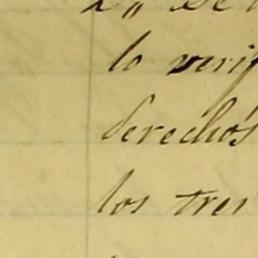 lo verif
derechos
los tres